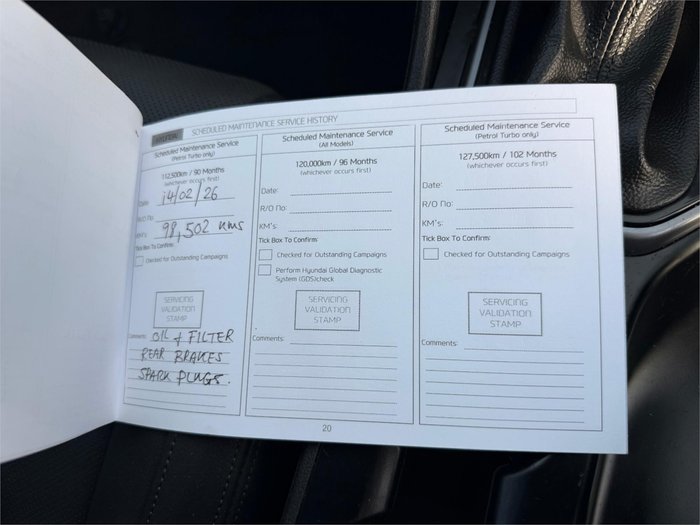 HYUNDAI SCHEDULED MAINTENANCE SERVICE HISTORY
Scheduled Maintenance Service
(Petrol Turbo only)
112,500km / 90 Months
(whichever occurs first)
Date: 14/02/26
R/O No
KM's: 98,502 kms
Tick Box To Confirm:
Checked for Outstanding Campaigns
SERVICING
VALIDATION
STAMP
Comments: OIL & FILTER
REAR BRAKES
SPARK PLUGS.
Scheduled Maintenance Service
(All Models)
120,000km / 96 Months
(whichever occurs first)
Date:
R/O No:
KM's:
Tick Box To Confirm:
Checked for Outstanding Campaigns
Perform Hyundai Global Diagnostic
System (GDS)check
SERVICING
VALIDATION
STAMP
Comments:
Scheduled Maintenance Service
(Petrol Turbo only)
127,500km / 102 Months
(whichever occurs first)
Date:
R/O No:
KM's:
Tick Box To Confirm:
Checked for Outstanding Campaigns
SERVICING
VALIDATION
STAMP
Comments:
20